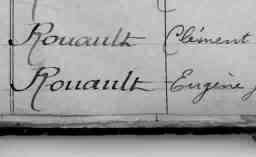 Rouault Clément
Rouault Eugène